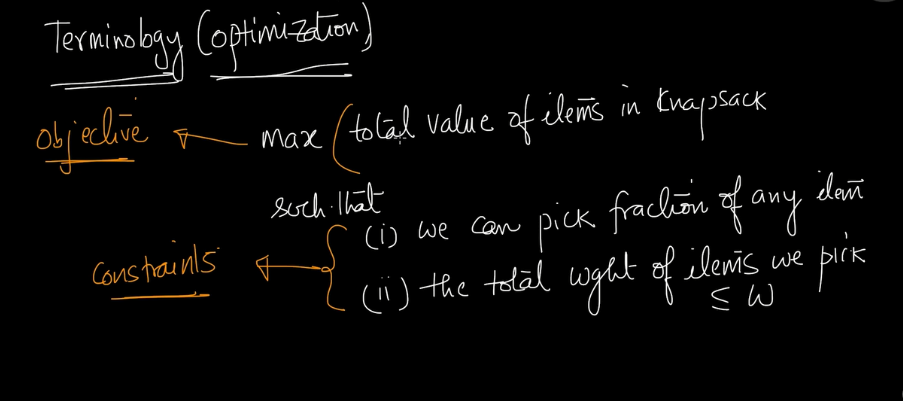 Terminology (optimization)
objective max (total value of items in knapsack
such that
(i) we can pick fraction of any item
constraints
(ii) the total wght of items we pick
≤ W